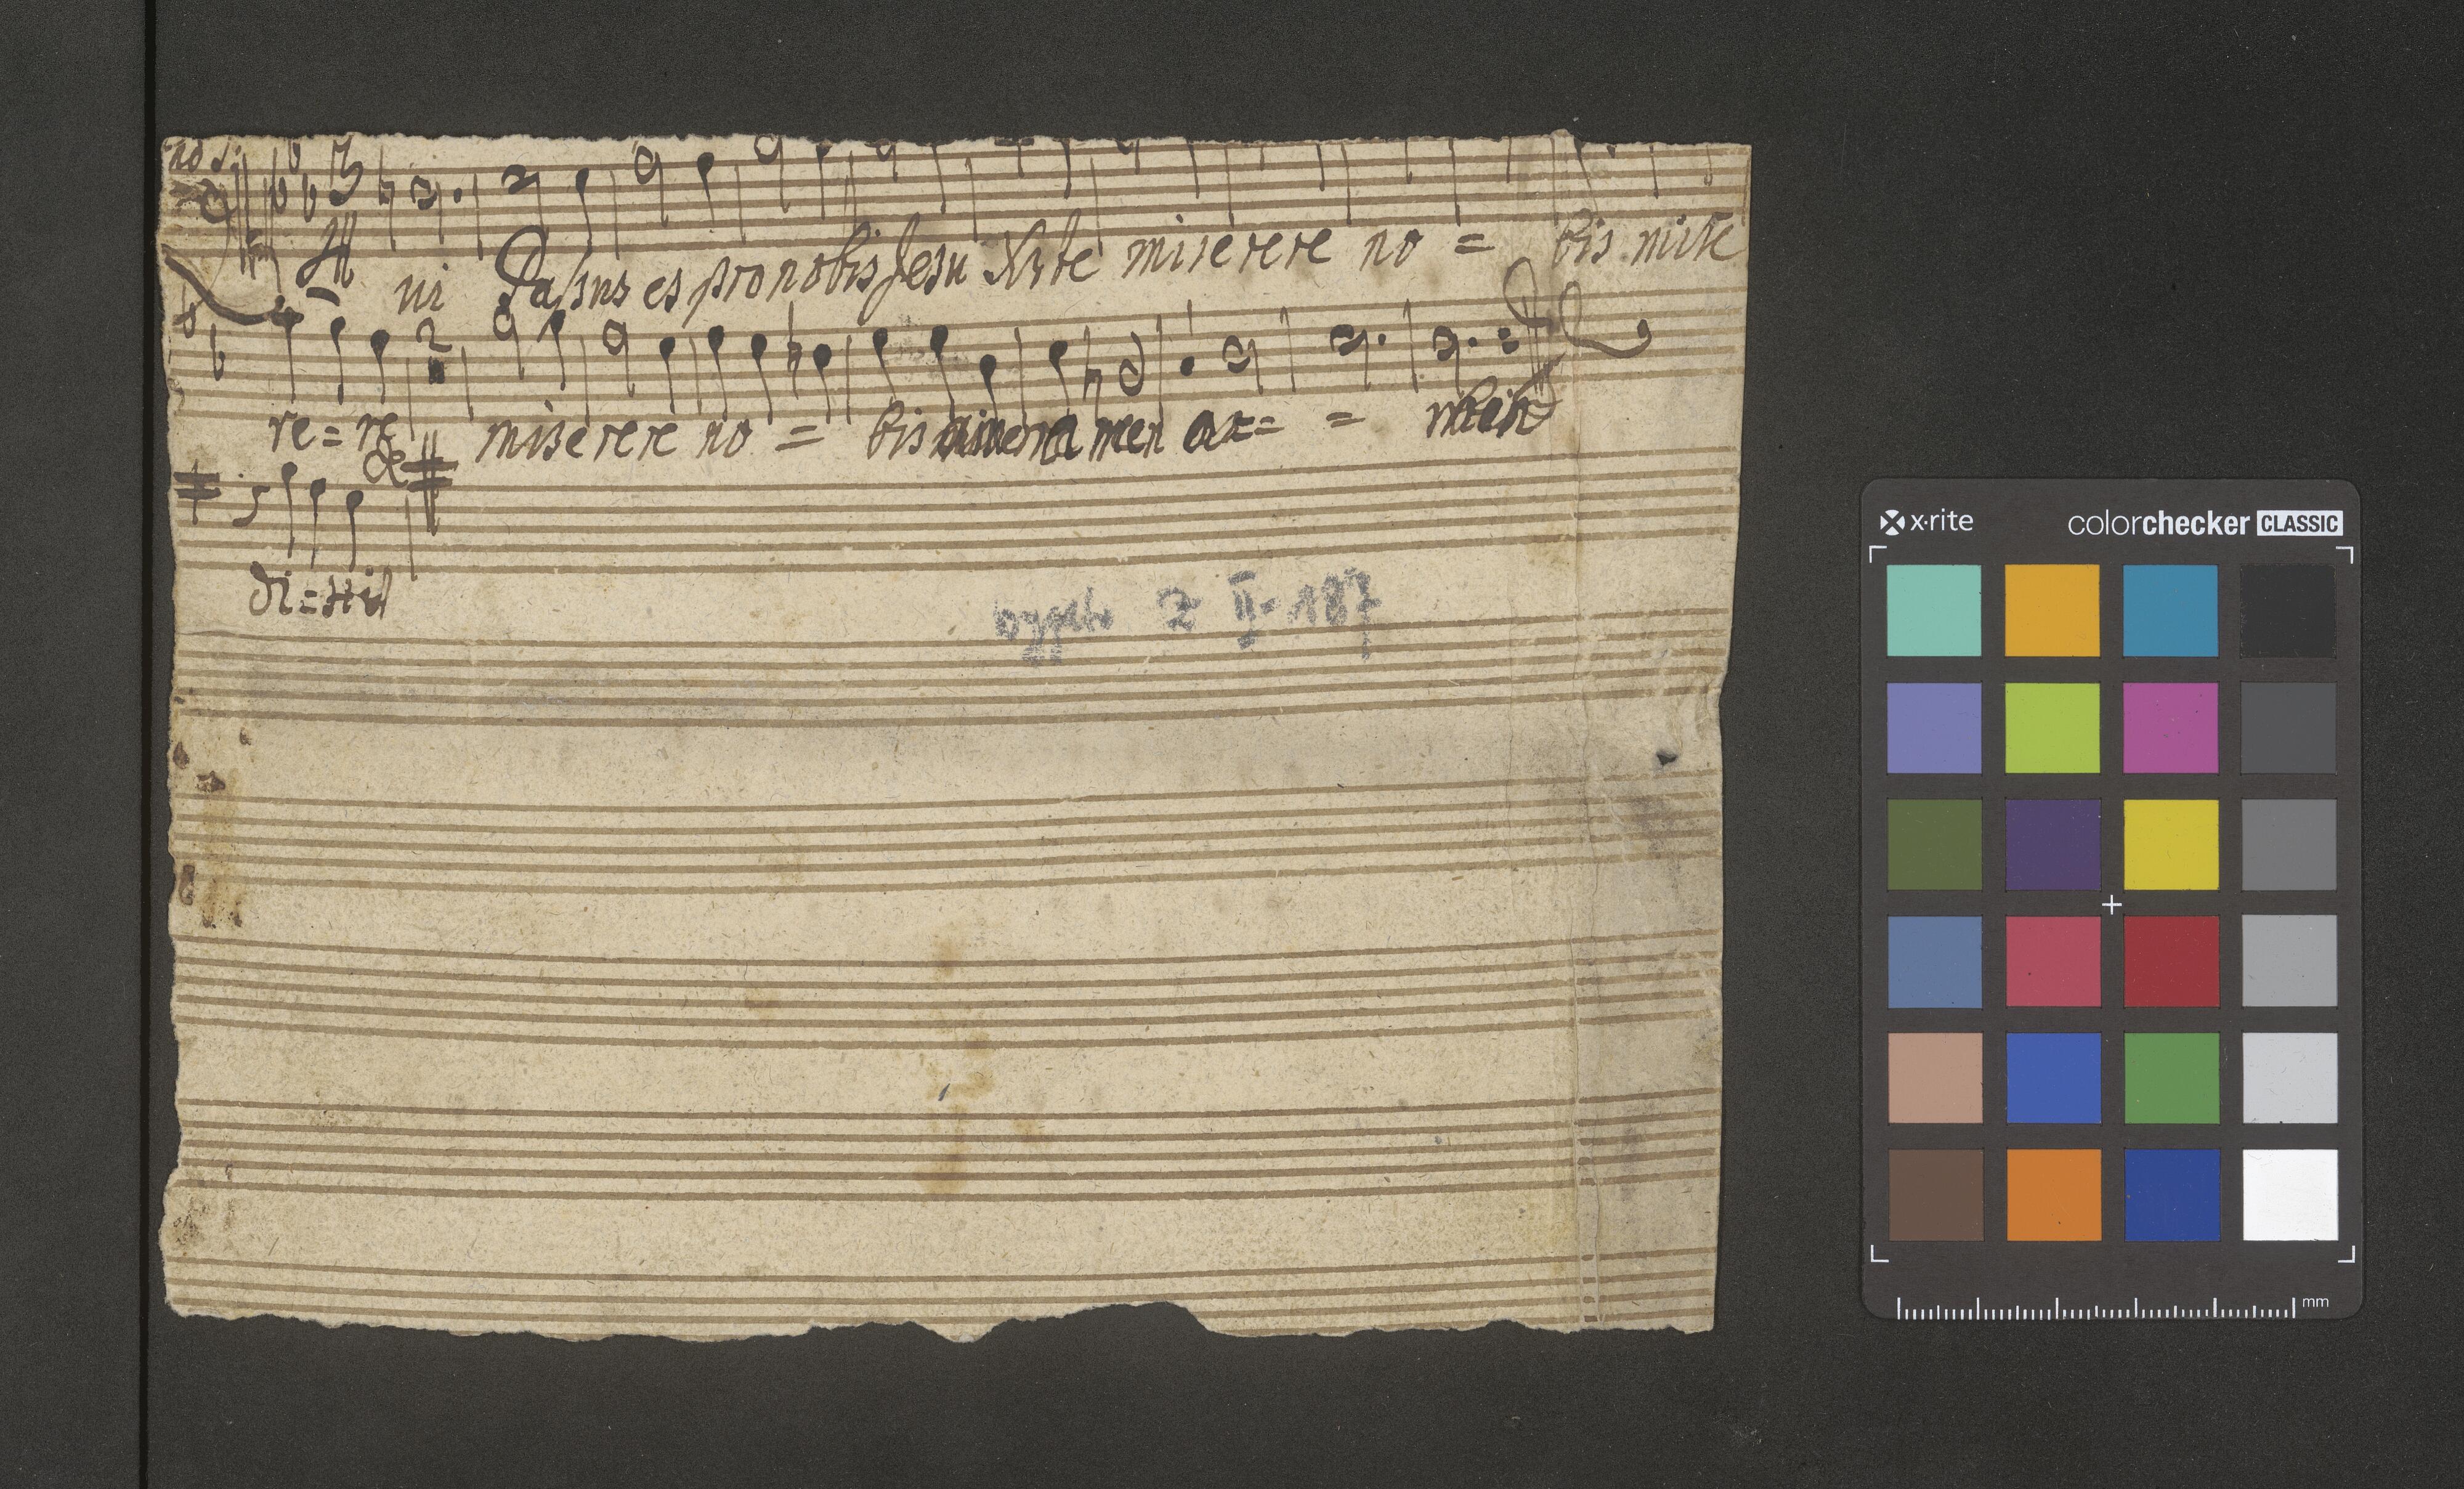 nos:
ui Passus es pro nobis Jesu Xrte miserere no = bis mise
2
re = re miserere no = bis amen a men a = = men
wyjęto z II-187
x·rite colorchecker CLASSIC
mm